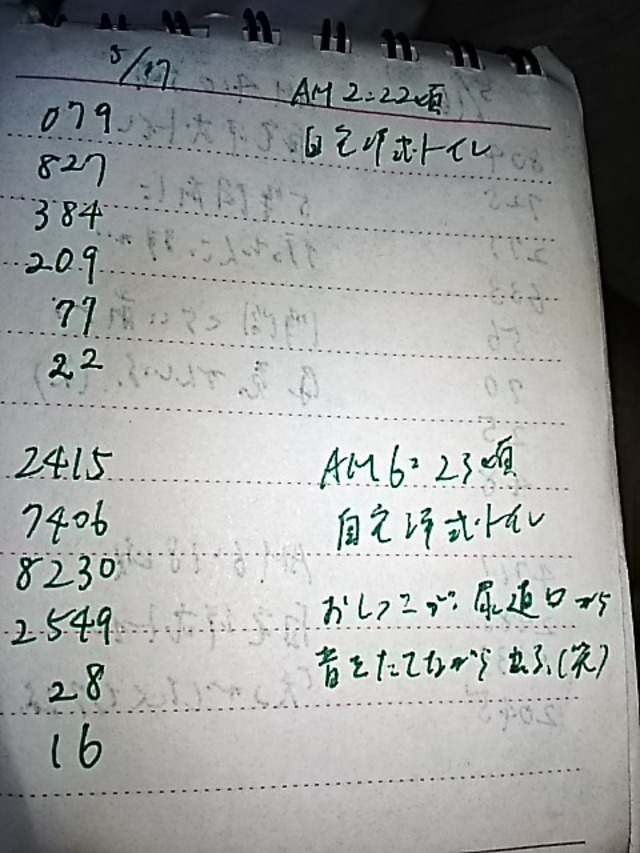 5/17
079 AM 2:22頃
827 自宅洋式トイレ
384
209
77
22
2415 AM 6:23頃
7406 自宅洋式トイレ
8230
2549 おしっこが尿道口から
28 音をたてながら出る(笑)
16